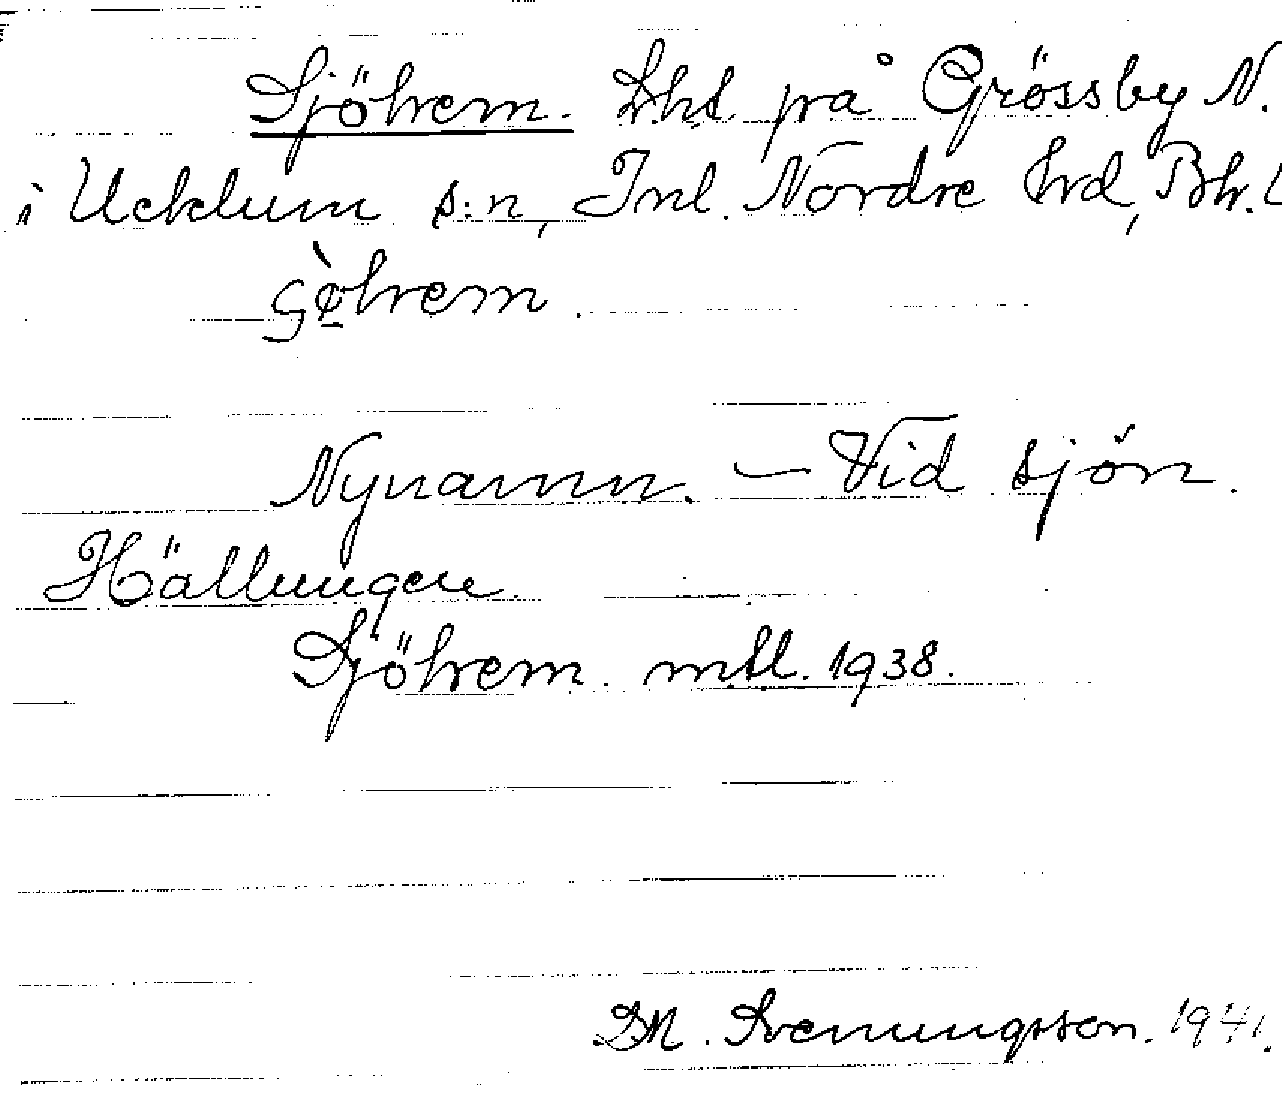 Sjöhem. Lht på Grössby N.
i Ucklum s:n, Inl. Nordre hrd, Bh. L
Nynamn. — Vid sjön
Hällungen.
Sjöhem. mtl. 1938.
D.M. Svenungsson. 1941.